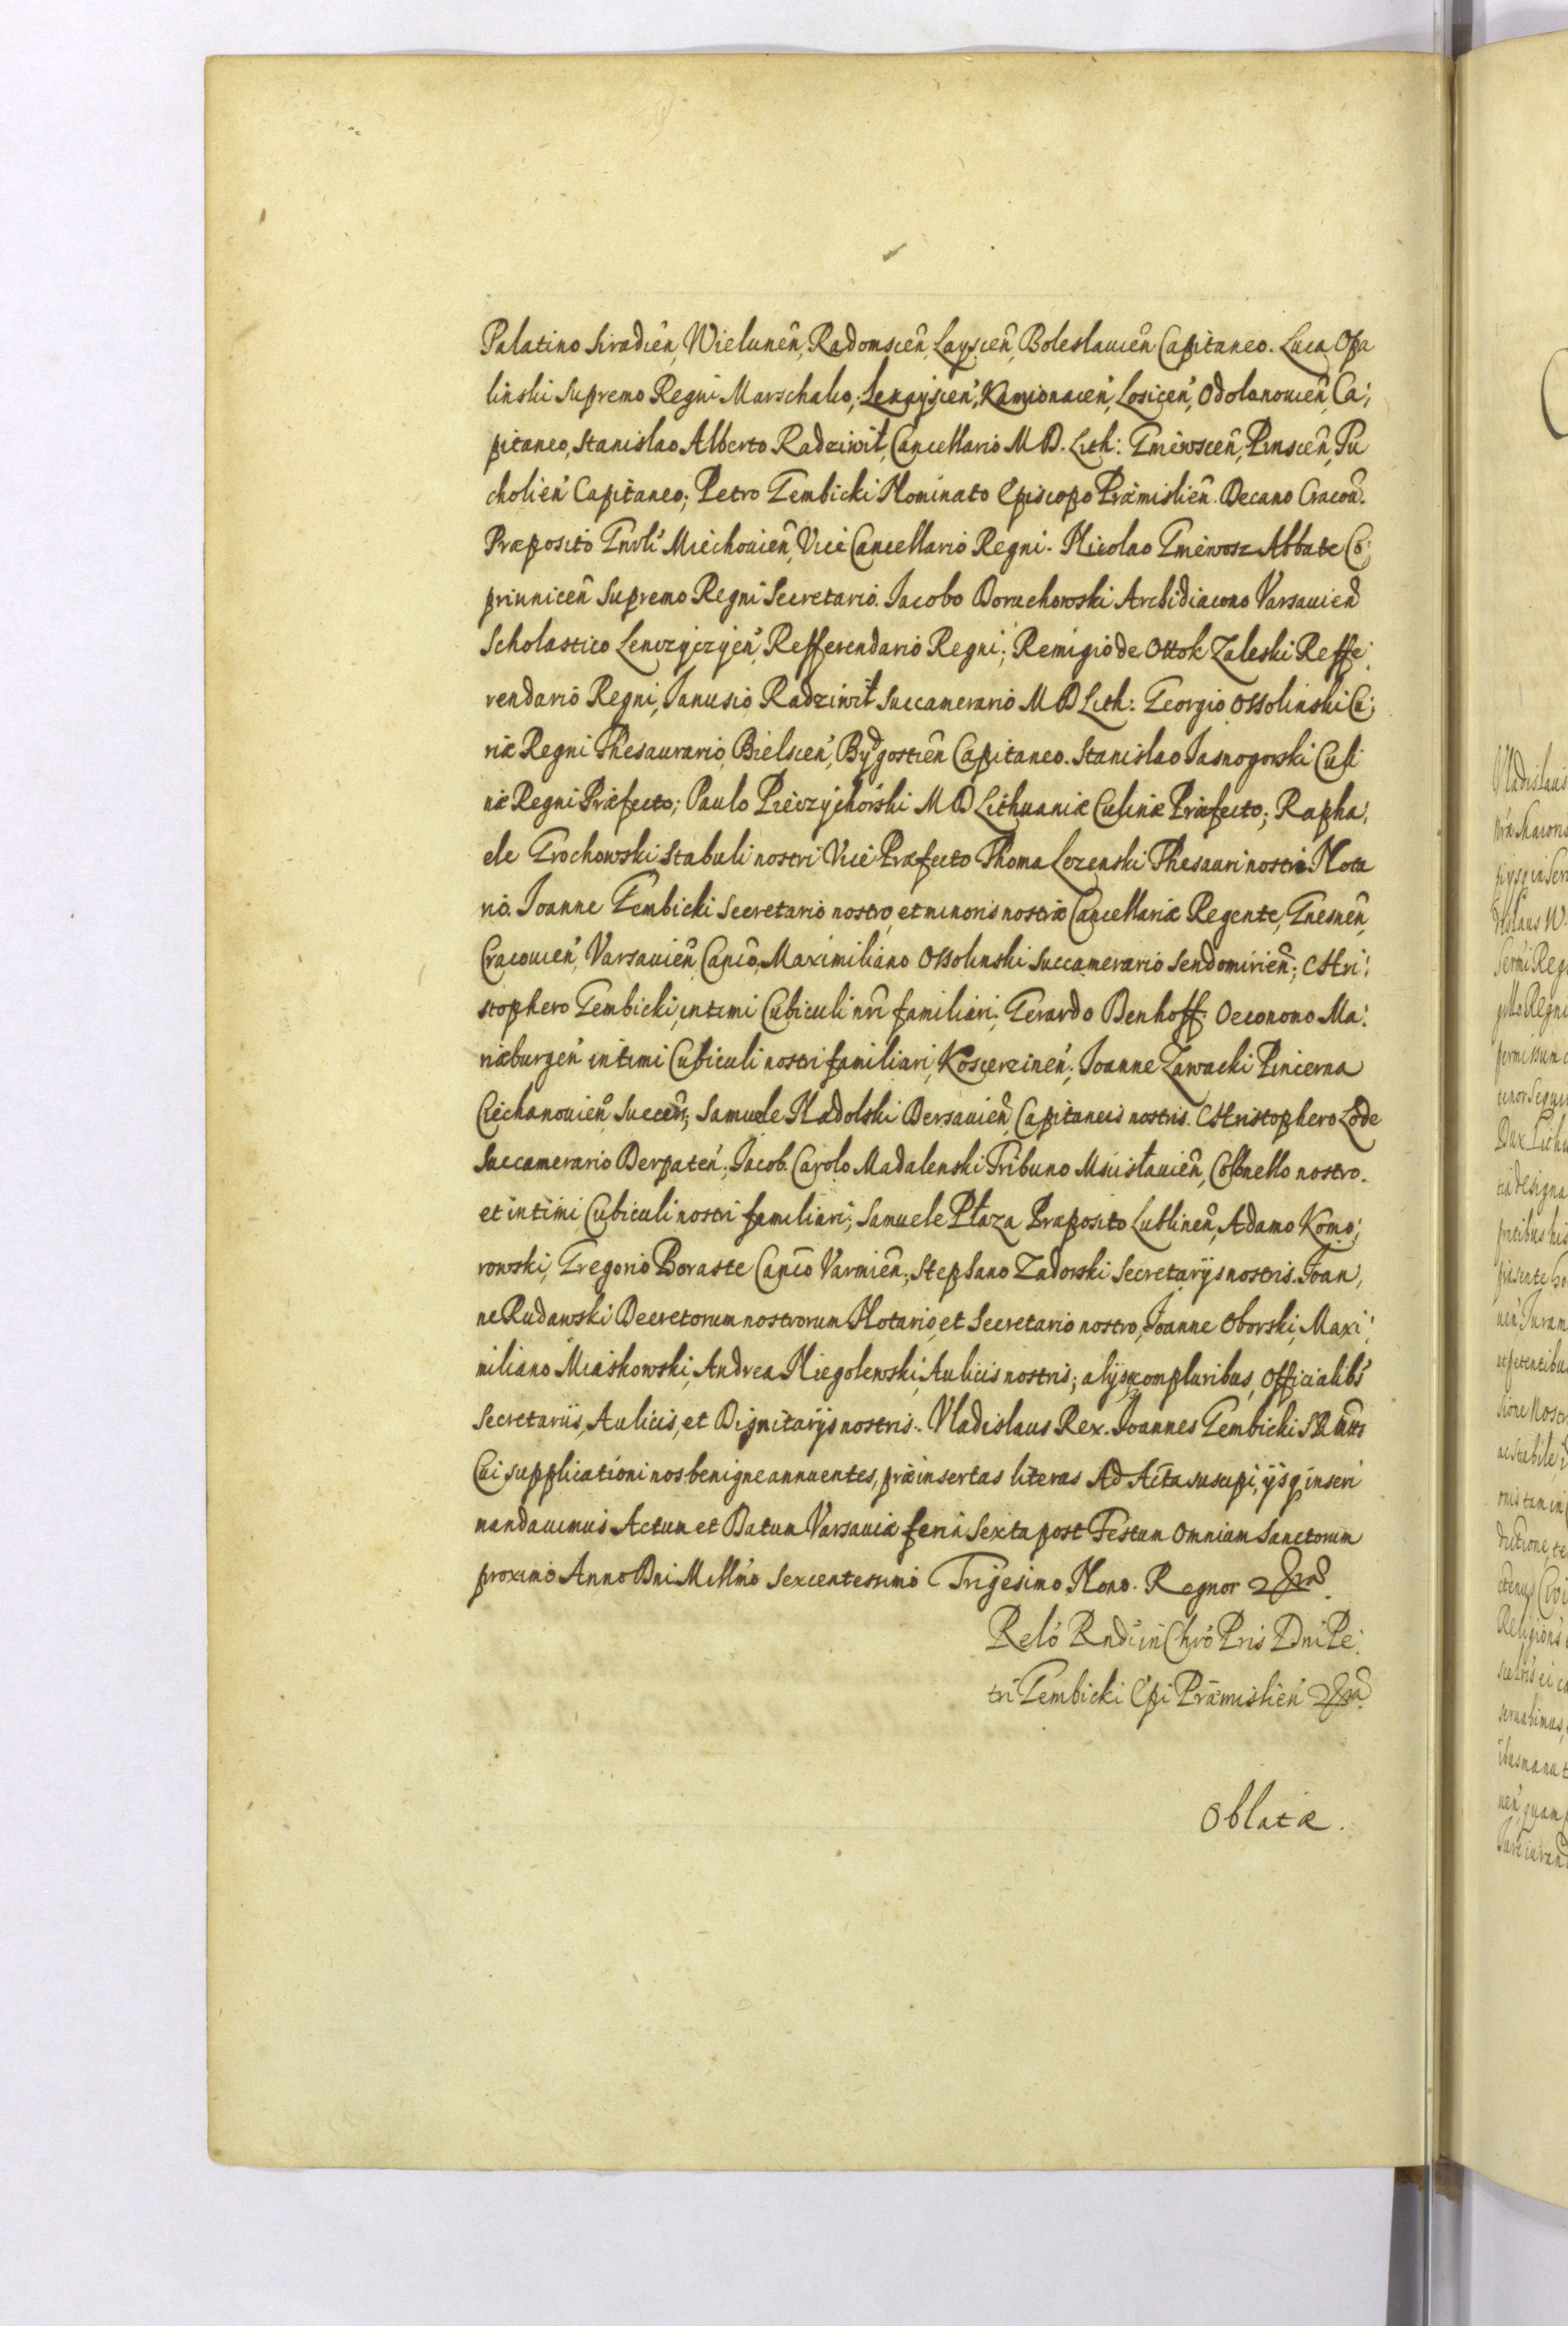 Palatino Siradień, Wieluneń, Radomscień, Layscień, Boleslauień Capitaneo. Luca Opa
linski Supremo Regni Marschalco, Lexayscień, Kamionacień, Losiceń, Odolanouień, Ca;
pitaneo, Stanislao Alberto Radziwił, Cancellario M D. Lith: Gniewscień, Pinscień, Tu
cholień Capitaneo; Petro Gembicki Nominato Episcopo Præmislień. Decano Cracoń.
Præposito Gnrli Miechouień, Vice Cancellario Regni. Nicolao Gniewosz Abbate Co;
priuniceń Supremo Regni Secretario. Jacobo Boruchowski Archidiacono Varsauień
Scholastico Lenczyczyeń, Refferendario Regni; Remigio de Ottok Zaleski Reffe;
rendario Regni, Janusio Radziwił Succamerario M D Lith: Georgio Ossolinski Cu;
riæ Regni Thesaurario, Bielscień, Bydgostień Capitaneo. Stanislao Jasnogorski Culi
næ Regni Præfecto; Paulo Pieczychorski M D Lithuaniæ Culinæ Præfecto; Rapha;
ele Grochowski Stabuli nostri Vice Præfecto Thoma Lezenski Thesauri nostri Nota
rio. Joanne Gembicki Secretario nostro, et minoris nostræ Cancellariæ Regente, Gnesneń,
Cracouień, Varsauień Canco, Maximiliano Ossolinski Succamerario Sendomirień; Chri;
stophero Gembicki, intimi Cubiculi nri familiari; Gerardo Denhoff Oeconomo Ma;
riæburgeń intimi Cubiculi nostri familiari, Koscierzineń; Joanne Zawacki Pincerna
Ciechanouień, Samuele Nadolski Bersauień, Capitaneis nostris. Christophero Lode
Succamerario Derpateń; Jacob. Carolo Madalenski Tribuno Mscisłauień, Colonello nostro.
et intimi Cubiculi nostri familiari; Samuele Płaza Præposito Lublineń, Adamo Komo;
rowski, Gregorio Boraste Canco Varmień; Stephano Zadorski Secretarijs nostris. Joan;
ne Rudawski Decretorum nostrorum Notario, et Secretario nostro, Joanne Oborski, Maxi;
miliano Miaskowski, Andrea Niegolewski, Aulicis nostris; alijsq compluribus, Officialibs
Secretariis, Aulicis, et Dignitarijs nostris. Vladislaus Rex. Joannes Gembicki
Cui supplicationi nos benigne annuentes, præinsertas literas Ad Acta suscipi, ijsq inseri
mandauimus Actum et Datum Varsauiæ feria Sexta post Festum Omnium Sanctorum
proximo Anno Dni Millmo Sexcentesimo Trigesimo Nono. Regnor
Relo Rndi in Chro Pris Dni Pe;
tri Gembicki Epi Præmislień
Oblatæ.